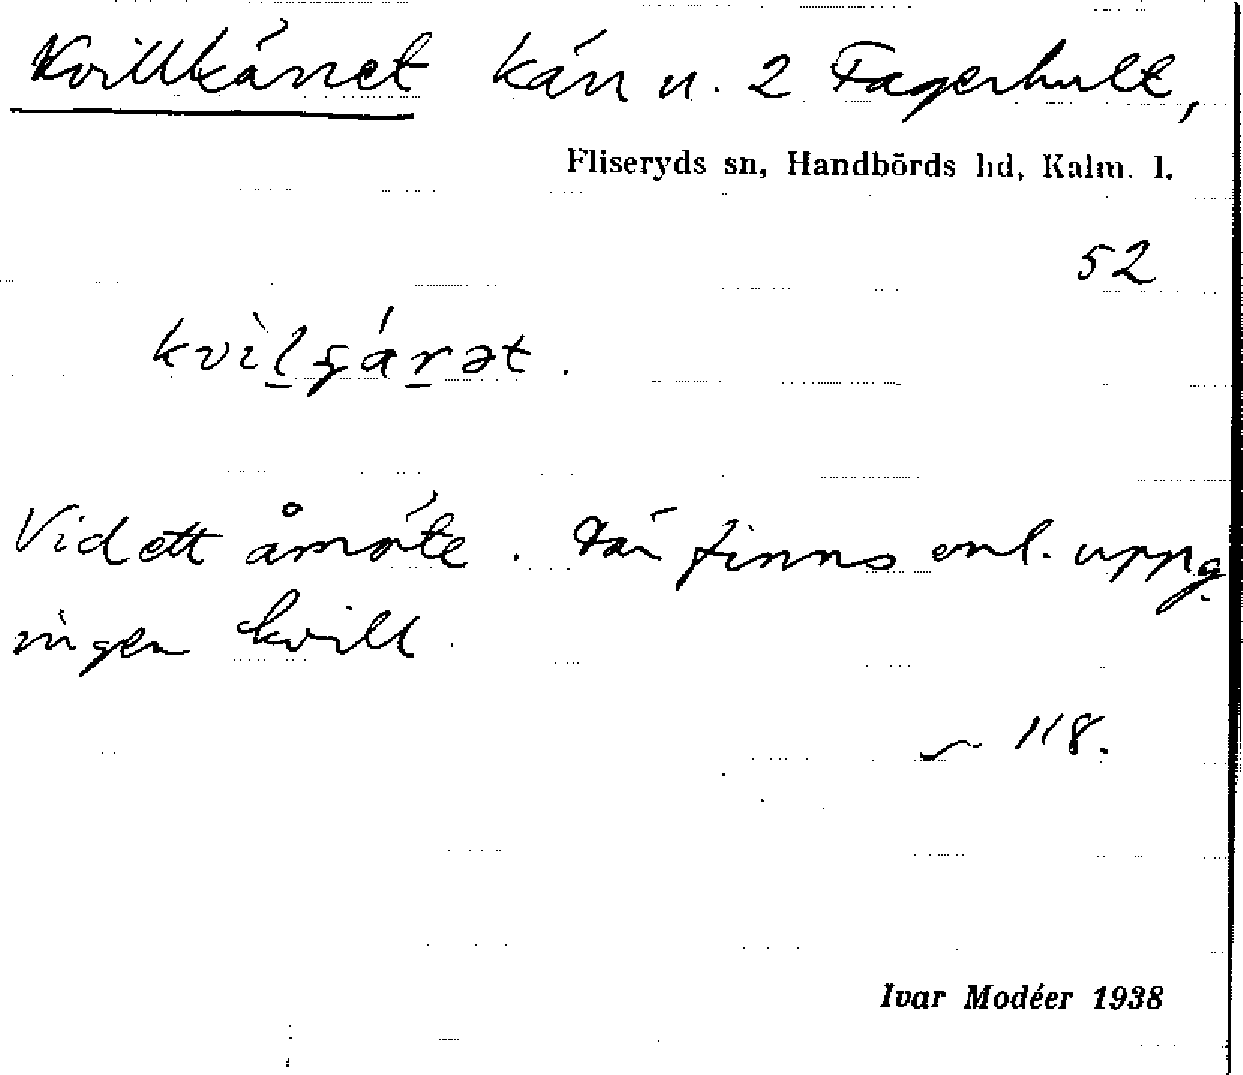 Kvillkärret kärr u. 2 Fagerhult,
Fliseryds sn, Handbörds hd, Kalm. l.
52
Vid ett åmöte. Där finns enl. uppg
ingen kvill.
118.
Ivar Modéer 1938